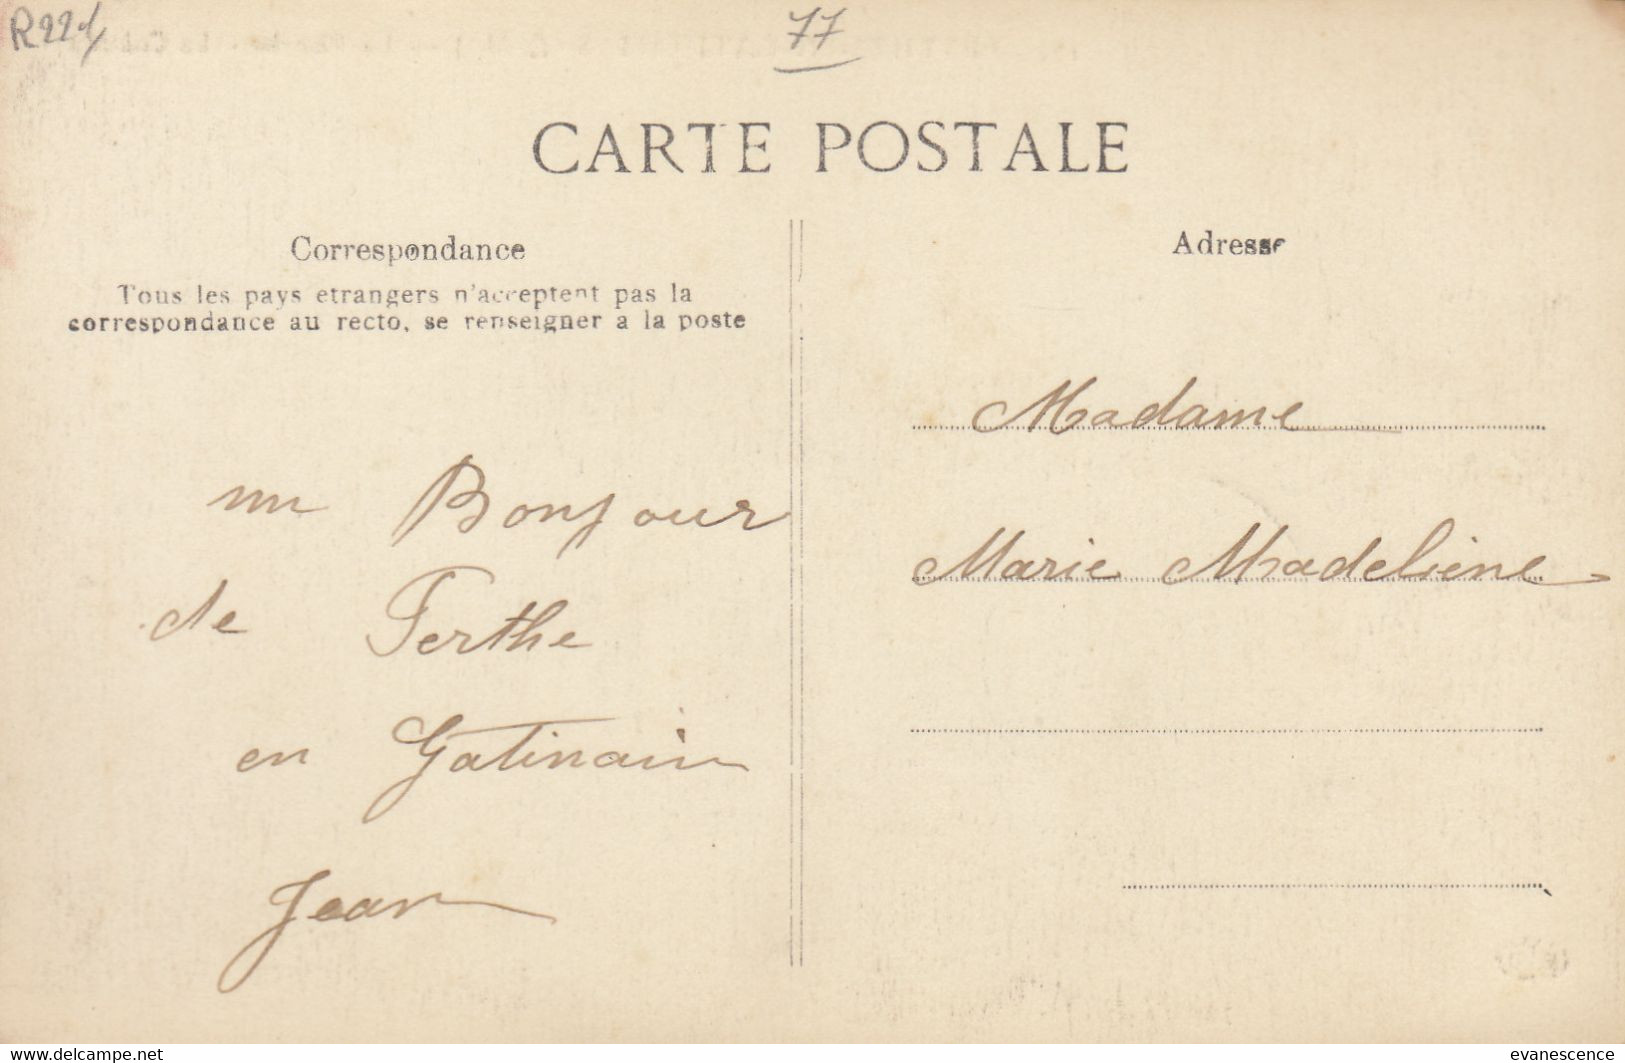 R221
77
CARTE POSTALE
Correspondance
Tous les pays etrangers n'acceptent pas la
correspondance au recto, se renseigner a la poste
un Bonjour
de Perthe
en Gatinain
Jean
Adresse
Madame
Marie Madeliene
delcampe.net
evanescence